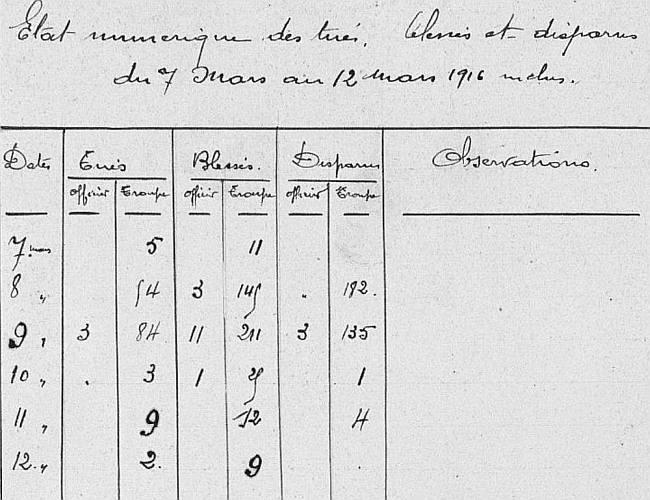 Etat numerique des tués, blessés et disparus
du 7 Mars au 12 mars 1916 inclus.
Dates Tués Blessés. Disparus Observations.
officier Troupe officier Troupe officier Troupe
7 mars 5 11
8 " 54 3 145 . 182.
9 " 3 84 11 211 3 135
10 " . 3 1 25 1
11 " 9 12 4
12 " 2. 9 .